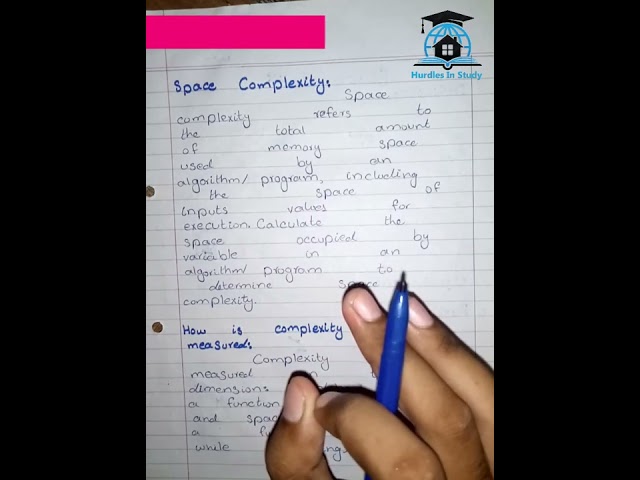 Hurdles In Study
Space Complexity:
Space
complexity refers to
the total amount
of memory space
used by an
algorithm/ program, including
the space of
inputs values for
execution. Calculate the
space occupied by
variable in an
algorithm/ program to
determine space
complexity.
How is complexity
measured:
Complexity
measured
dimensions
a function
and
a
while